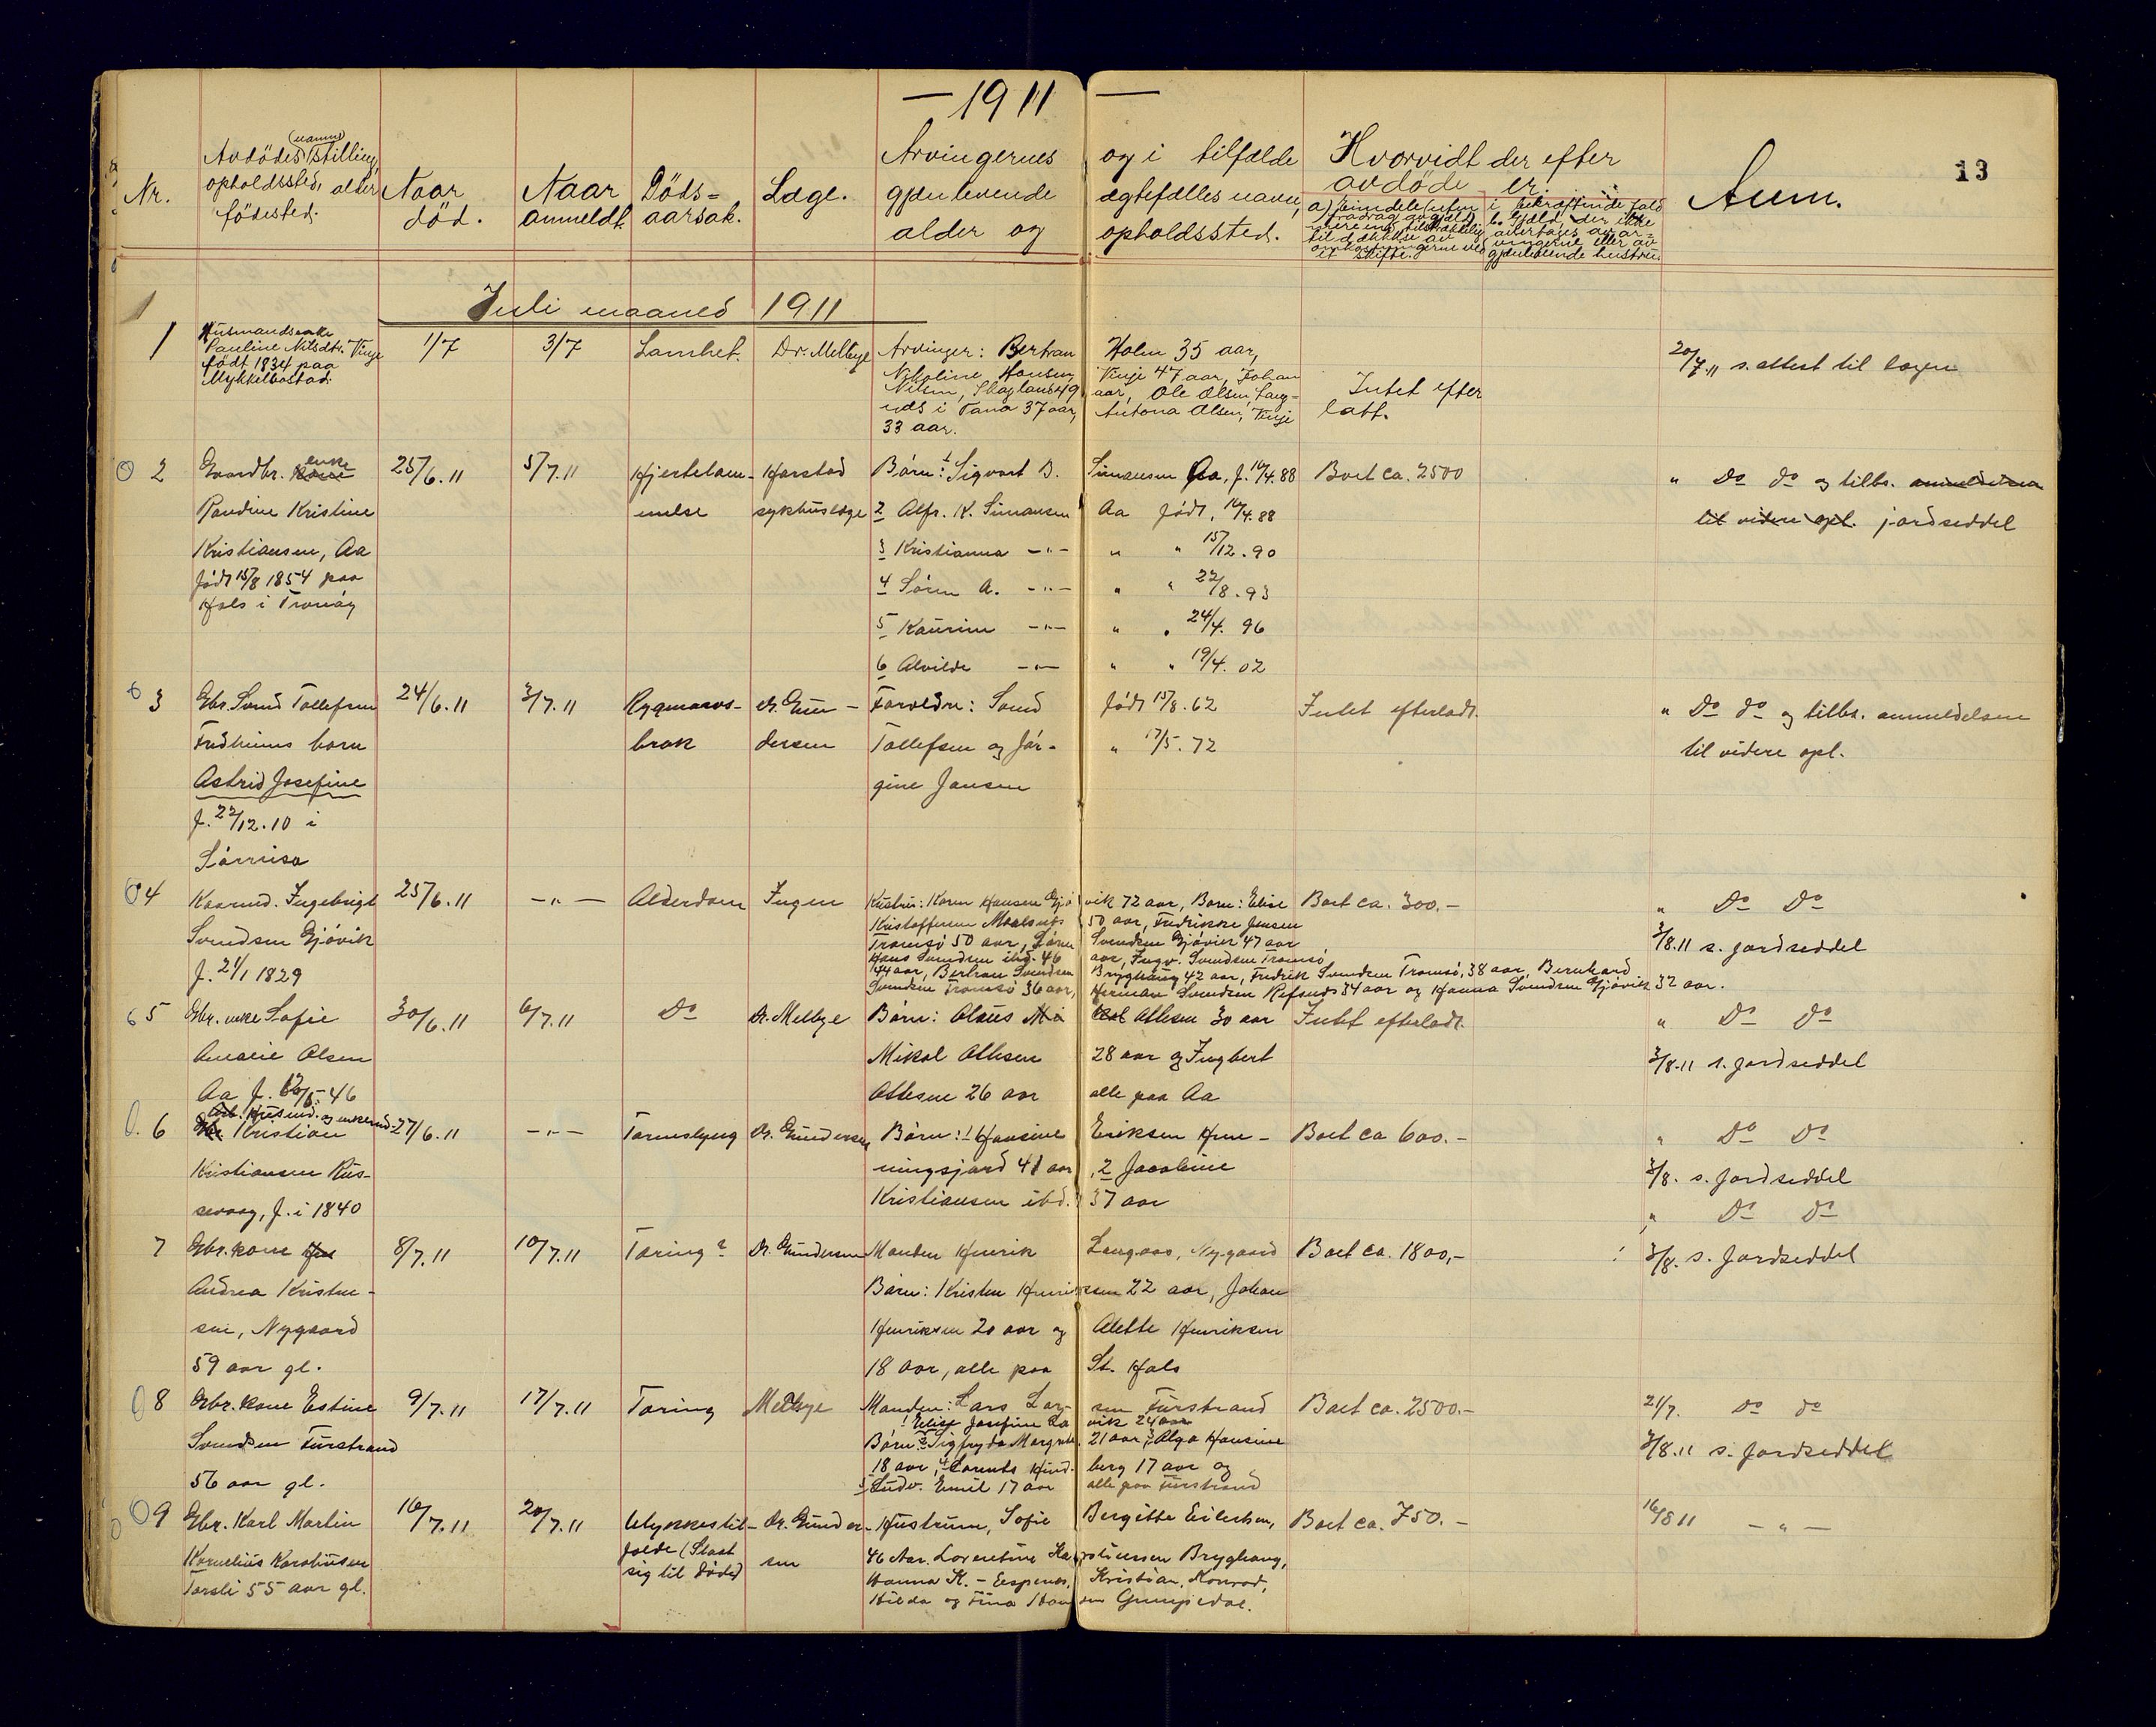 — 1911 —
13
Nr.
Avdödes (namn) stilling,
opholdssted, alder
födested.
Naar
död.
Naar
anmeldt.
Döds=
aarsak.
Læge.
Arvingernes og i tilfælde
gjenlevende ægtefælles navn,
alder og opholdssted.
Hvorvidt der efter
avdöde er.
Anm.
Juli maaned 1911
1
Husmandsenke
Pauline Nilsdtr. Vinje
født 1834 paa
Mykkelbostad.
1/7
3/7
Lamhet.
Dr. Melbye
Arvinger: Bertran Holm 35 aar,
Nikoline Hansen, Vinje 47 aar, Johan
Nilsen, Skogland 49 aar, Ole Olsen, Lang-
nds i Tana 37 aar, Antona Olsen, Vinje
33 aar.
Intet efter
latt.
20/7.11 s. attest til lægen
2
Gaardbr. kone enke
Paudine Kristine
Kristiansen, Aa
født 15/8 1854 paa
Hals i Tranöy
25/6.11
5/7.11
Hjertelam-
melse
Harstad
sykhuslæge
Børn: 1 Sigvart B. Simansen Aa, f. 16/4.88
2 Alfr. K. Simansen Aa født, 16/4.88
3 Kristianna -"- " " 15/12.90
4 Søren A. -"- " " 22/8.93
5 Kaurine -"- " " 24/4.96
6 Alvilde -"- " " 19/4.02
Boet ca. 2500
" Do do og tilbs. anmeldelsen
til videre opl. jordseddel
3
Gbr. Svend Tollefsen
Fredheims barn
Astrid Josefine
f. 22/12.10 i
Sørreisa
24/6.11
3/7.11
Rygmarvs-
brok
dr. Gun-
dersen
Forældre: Svend født 15/8.62
Tollefsen og Jør- " 17/5.72
gine Jansen
Intet efterladt.
" Do do og tilbs. anmeldelsen
til videre opl.
4
Kaarmd. Ingebrigt
Svendsen Gjøvik
f. 21/1 1829
25/6.11
-"-
Alderdom
Ingen
Hustru: Karen Hansen Gjøvik 72 aar, Barn: Elise
Kristoffersen Maalsnes 50 aar, Fredrikke Jensen
Tromsø 50 aar, Søren Svendsen Gjøvik 47 aar
Hans Svendsen ibid. 46 aar, Ingv. Svendsen Tromsø
44 aar, Bertran Svendsen Bryghaug 42 aar, Fredrik Svendsen Tromsø, 38 aar, Bernhard
Svendsen Tromsø 36 aar, Herman Svendsen Refsnes 34 aar og Hanna Svendsen Gjøvik 32 aar.
Boet ca. 300.-
" Do Do
3/8.11 s. jordseddel
5
Gbr. enke Sofie
Amalie Olsen
Aa f. 12/5-46
30/6.11
6/7.11
Do
Dr. Melbye
Børn: Olaus Ottesen 30 aar
Mikal Ottesen 28 aar og Ingbert
Ottesen 26 aar alle paa Aa
Intet efterladt.
" Do Do
3/8.11 s. jordseddel
6
Arb. Husmd. og enkemd.
Gbr. Kristian
Kristiansen Rus-
sevaag, f. i 1840
27/6.11
-"-
Tarmslyng
Dr. Gundersen
Børn: 1 Hansine Eriksen Hem-
ningsjord 41 aar, 2 Jacobine
Kristiansen ibd. 37 aar
Boet ca 600.-
" Do Do
3/8. s. jordseddel
7
Gbr. kone
Andrea Kristen-
sen, Nygaard
59 aar gl.
8/7.11
10/7.11
Tæring?
Dr. Gundersen
Manden Henrik Langaas, Nygaard
Børn: Kristen Henriksen 22 aar, Johan
Henriksen 20 aar og Alette Henriksen
18 aar, alle paa St. Hals
Boet ca. 1800,-
" Do Do
3/8. s. jordseddel
8
Gbr. kone Estine
Svendsen Furstrand
56 aar gl.
9/7.11
17/7.11
Tæring
Melbye
Manden: Lars Larsen Furstrand
1 Elise Josefine Lavik 24 aar
Børn: 2 Sigfryda Margrete 21 aar, 3 Alga Hansine
18 aar, 4 Lorents Hindberg 17 aar og
5 Ludv. Emil 17 aar alle paa Furstrand
Boet ca. 2500.-
21/7. Do do
3/8.11 s. jordseddel
9
Gbr. Karl Martin
Kornelius Karolinsen
Torsli 55 aar gl.
16/7.11
20/7.11
Ulykkestil-
fælde (Slaat
sig til døde)
dr. Gunder-
sen
Hustruen, Sofie Bergitte Eilertsen,
46 Aar. Lorentine Karolinesen Bryghaug,
Hanna K. - Espenes, Kristian, Konrad,
Hilda og Fina
Boet ca. 750.-
16/8 11 -"-